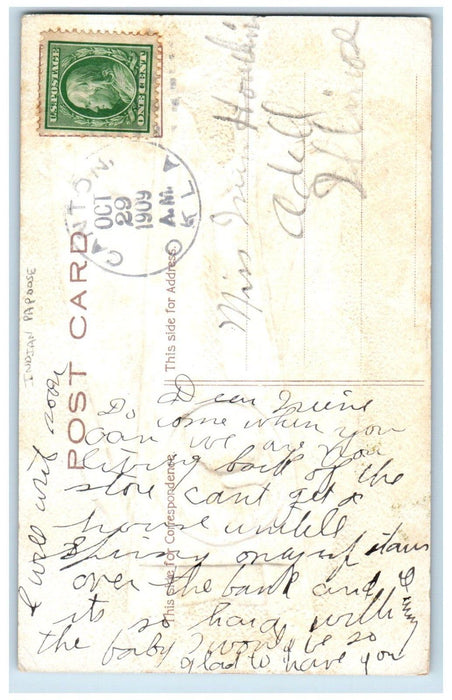 U.S. POSTAGE
ONE CENT
CANTON,
OCT
29
1909
A.M.
OKL
POST CARD
This side for Address.
This side for Correspondence.
INDIAN PAPOOSE
Miss
Adell
Dear Irene
Do come when you
can we are now
living back of the
store cant get a
house untill
Spring onayuf stairs
over the bank and
its so hard with
the baby I would be so
glad to have you
I will writ soon